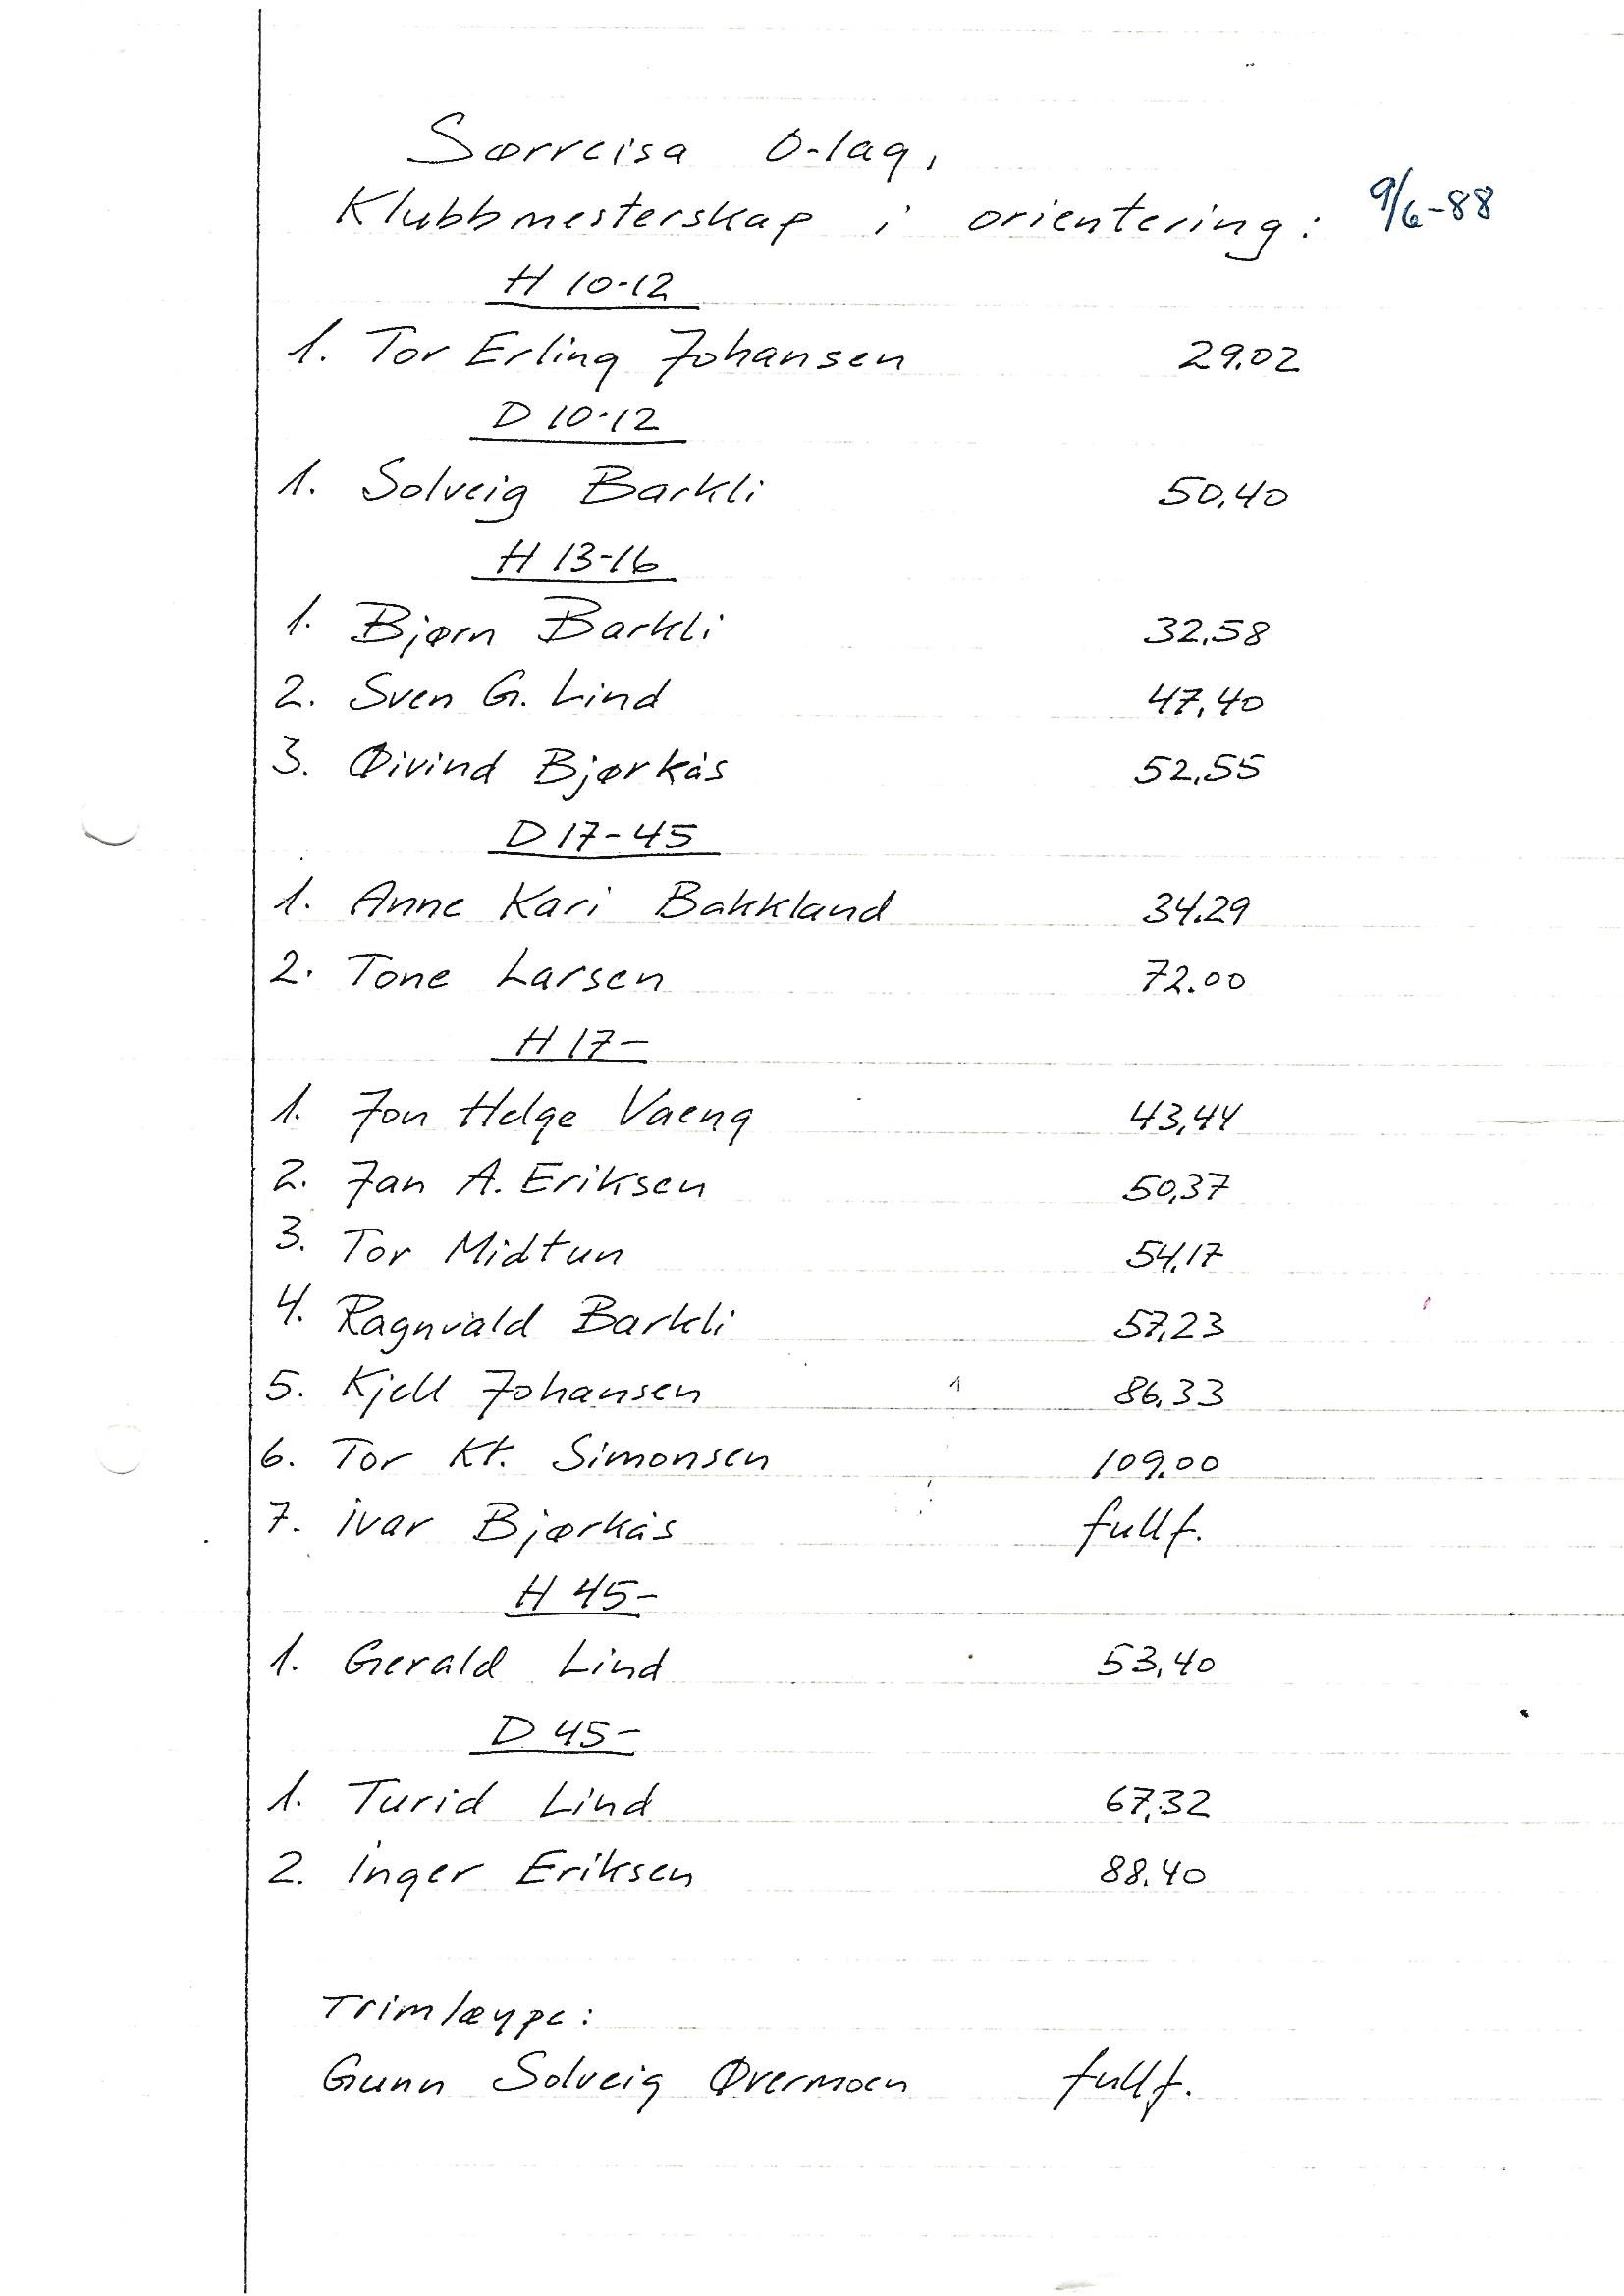 Sørreisa O-lag,
Klubbmesterskap i orientering: 9/6-88
H 10-12
1. Tor Erling Johansen 29.02
D 10-12
1. Solveig Barkli 50.40
H 13-16
1. Bjørn Barkli 32.58
2. Sven G. Lind 47.40
3. Øivind Bjørkås 52.55
D 17-45
1. Anne Kari Bakkland 34.29
2. Tone Larsen 72.00
H 17-
1. Jon Helge Vaeng 43,44
2. Jan A. Eriksen 50,37
3. Tor Midtun 54,17
4. Ragnvald Barkli 57,23
5. Kjell Johansen 86,33
6. Tor Kr. Simonsen 109.00
7. Ivar Bjørkås fullf.
H 45-
1. Gerald Lind 53,40
D 45-
1. Turid Lind 67,32
2. Inger Eriksen 88.40
Trimløype:
Gunn Solveig Øvermoen fullf.